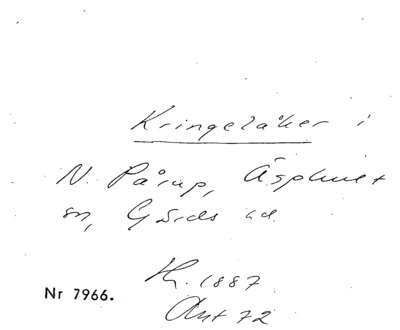 Kringelåker i
N. Påarp, Äsphult
sn, Gärds hd.
Nr 7966.
1887
72